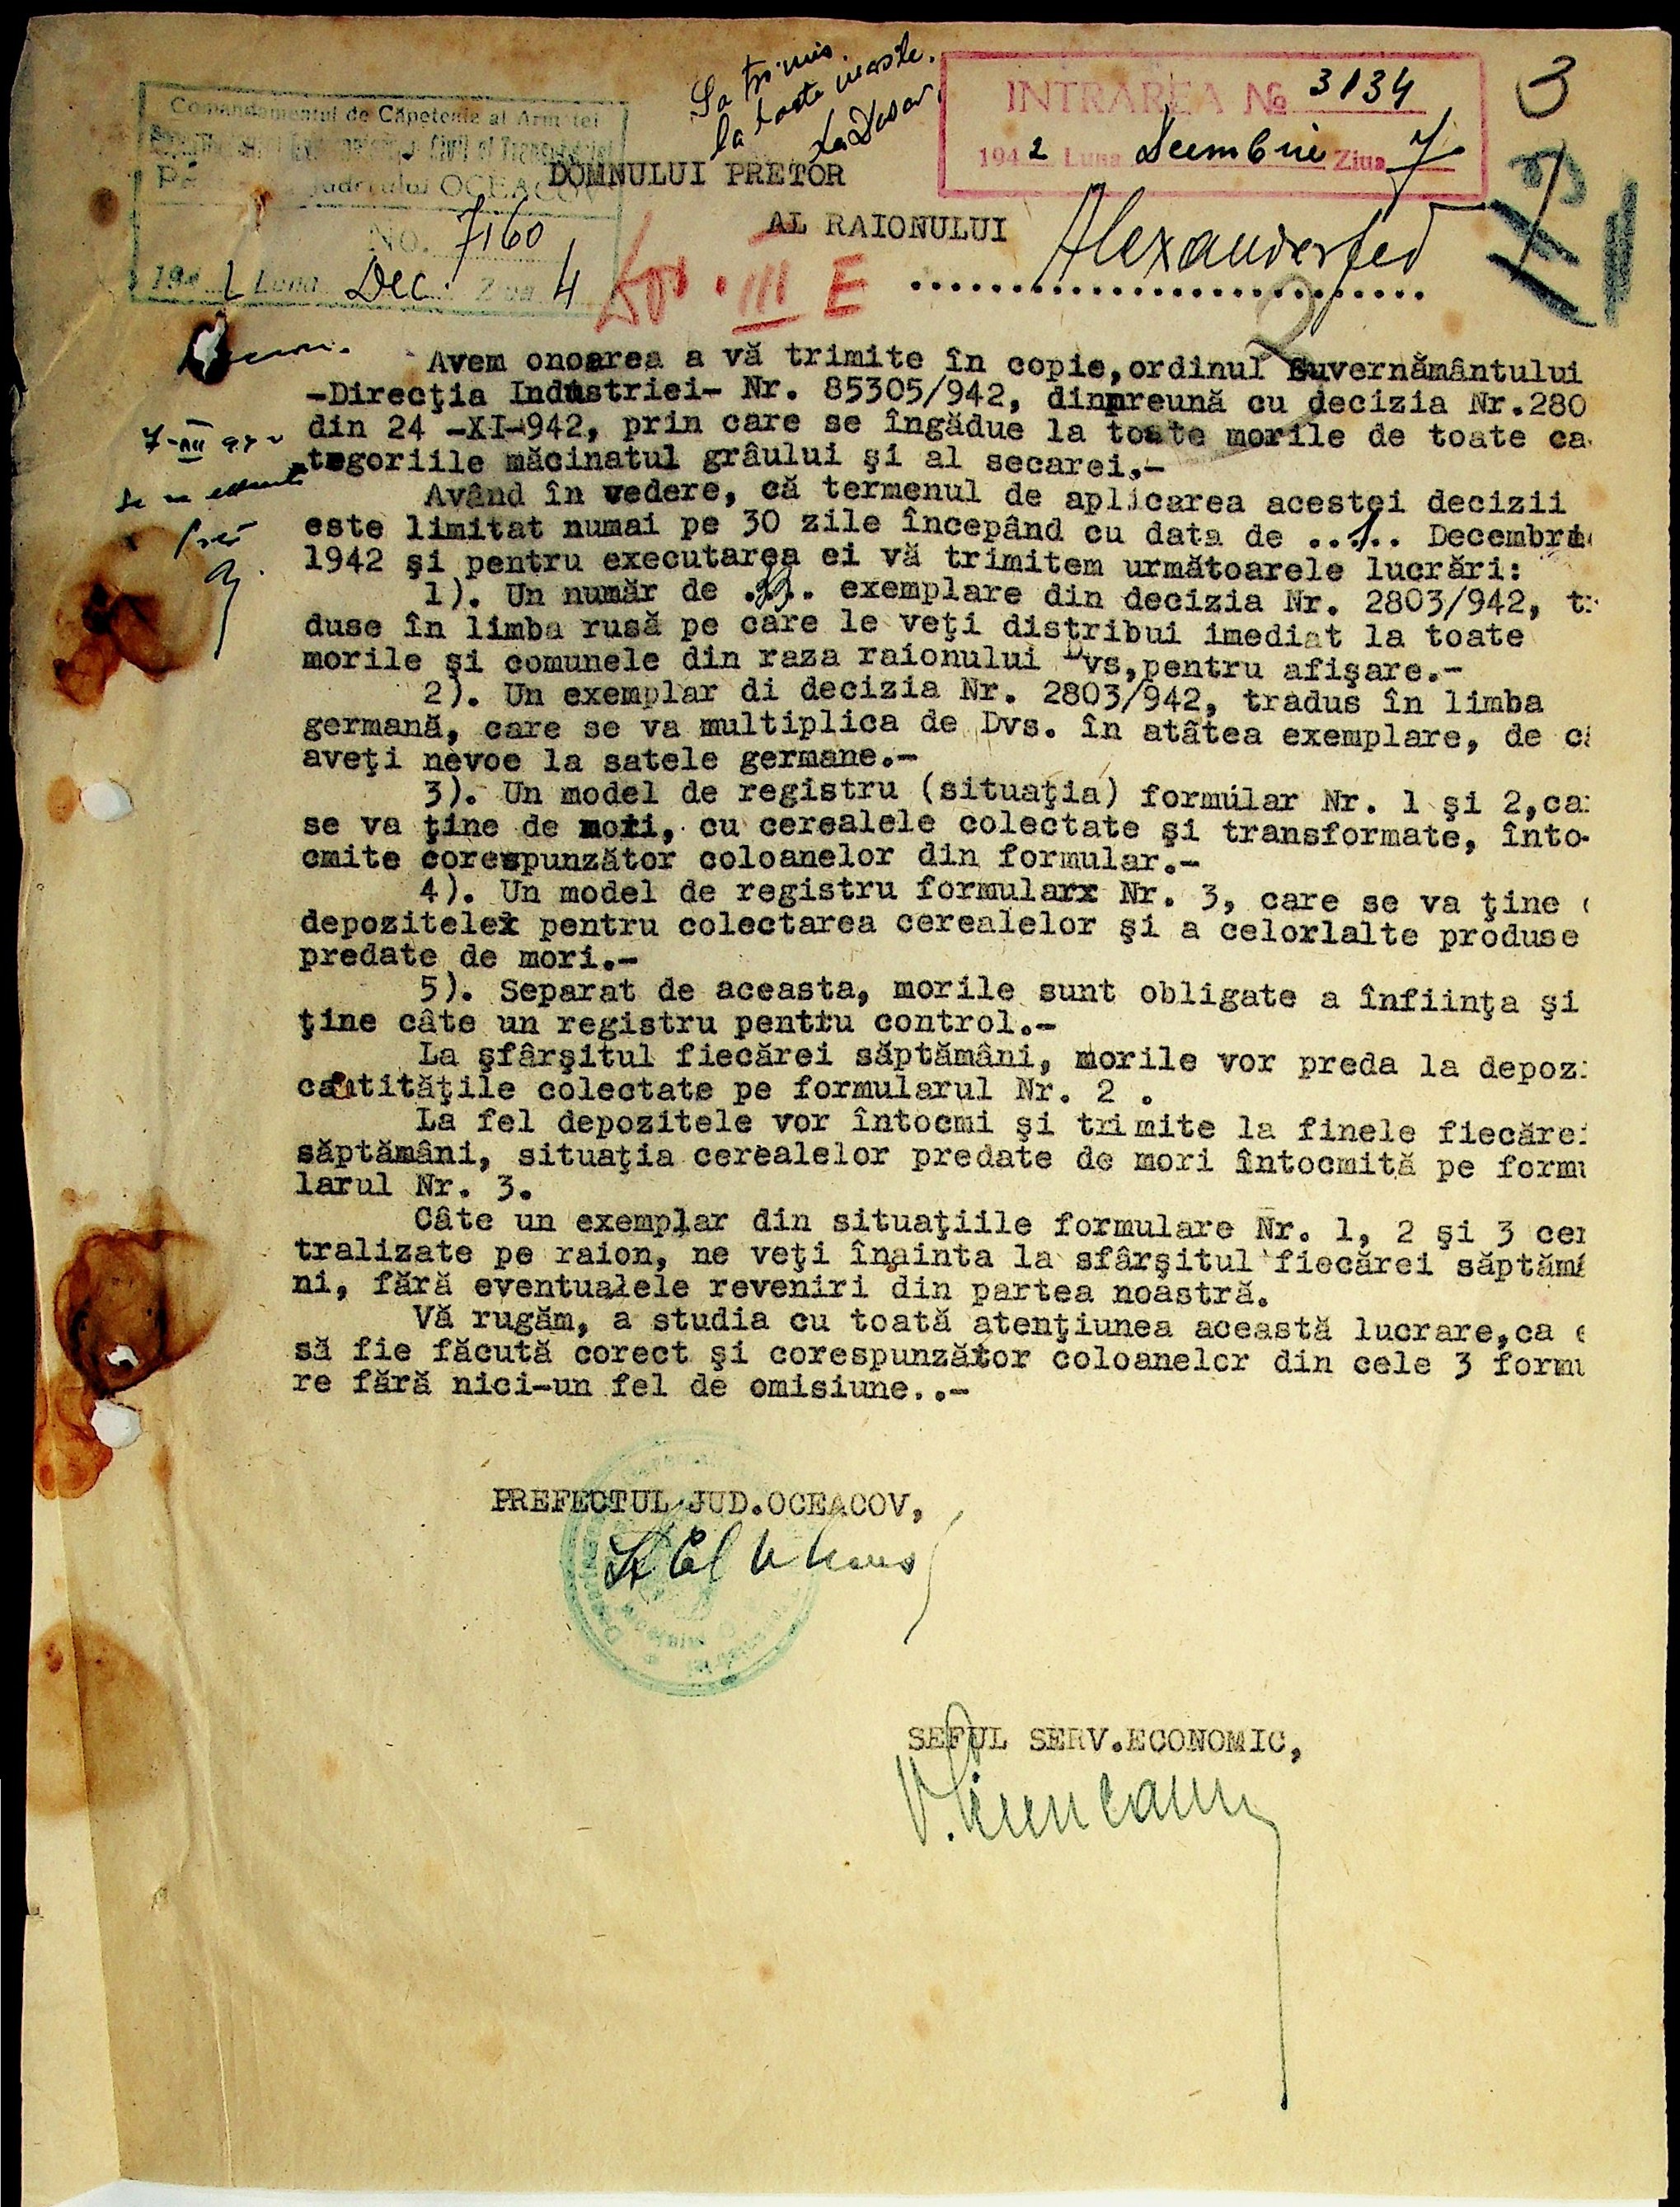 Comandamentul de Căpetenie al Armatei
Judetului OCEACOV
No. 7160
194 2 Luna Dec. Ziua 4
S'a trimis
la toate
La Dosar
INTRAREA № 3134
194 2 Luna Decembrie Ziua 7
3
DOMNULUI PRETOR
AL RAIONULUI
Alexanderfed
III E
Avem onoarea a vă trimite în copie,ordinul Guvernământului
-Direcţia Industriei- Nr. 85305/942, dinpreună cu decizia Nr.280
din 24 -XI-942, prin care se îngădue la toate morile de toate ca
tegoriile măcinatul grâului şi al secarei.-
Având în vedere, că termenul de aplicarea acestei decizii
este limitat numai pe 30 zile începând cu data de ..1.. Decembrie
1942 şi pentru executarea ei vă trimitem următoarele lucrări:
1). Un număr de exemplare din decizia Nr. 2803/942, tr
duse în limba rusă pe care le veţi distribui imediat la toate
morile şi comunele din raza raionului Dvs,pentru afişare.-
2). Un exemplar di decizia Nr. 2803/942, tradus în limba
germană, care se va multiplica de Dvs. în atâtea exemplare, de câ
aveţi nevoe la satele germane.-
3). Un model de registru (situaţia) formular Nr. 1 şi 2,car
se va ţine de mori, cu cerealele colectate şi transformate, înto-
cmite corespunzător coloanelor din formular.-
4). Un model de registru formularx Nr. 3, care se va ţine
depozitelex pentru colectarea cerealelor şi a celorlalte produse
predate de mori.-
5). Separat de aceasta, morile sunt obligate a înfiinţa şi
ţine câte un registru pentru control.-
La şfârşitul fiecărei săptămâni, morile vor preda la depozi
cantităţile colectate pe formularul Nr. 2 .
La fel depozitele vor întocmi şi trimite la finele fiecărei
săptămâni, situaţia cerealelor predate de mori întocmită pe formu
larul Nr. 3.
Câte un exemplar din situaţiile formulare Nr. 1, 2 şi 3 cen
tralizate pe raion, ne veţi înainta la sfârşitul fiecărei săptămâ
ni, fără eventualele reveniri din partea noastră.
Vă rugăm, a studia cu toată atenţiunea această lucrare,ca e
să fie făcută corect şi corespunzător coloanelor din cele 3 formu
re fără nici-un fel de omisiune..-
PREFECTUL JUD.OCEACOV,
SEFUL SERV.ECONOMIC,